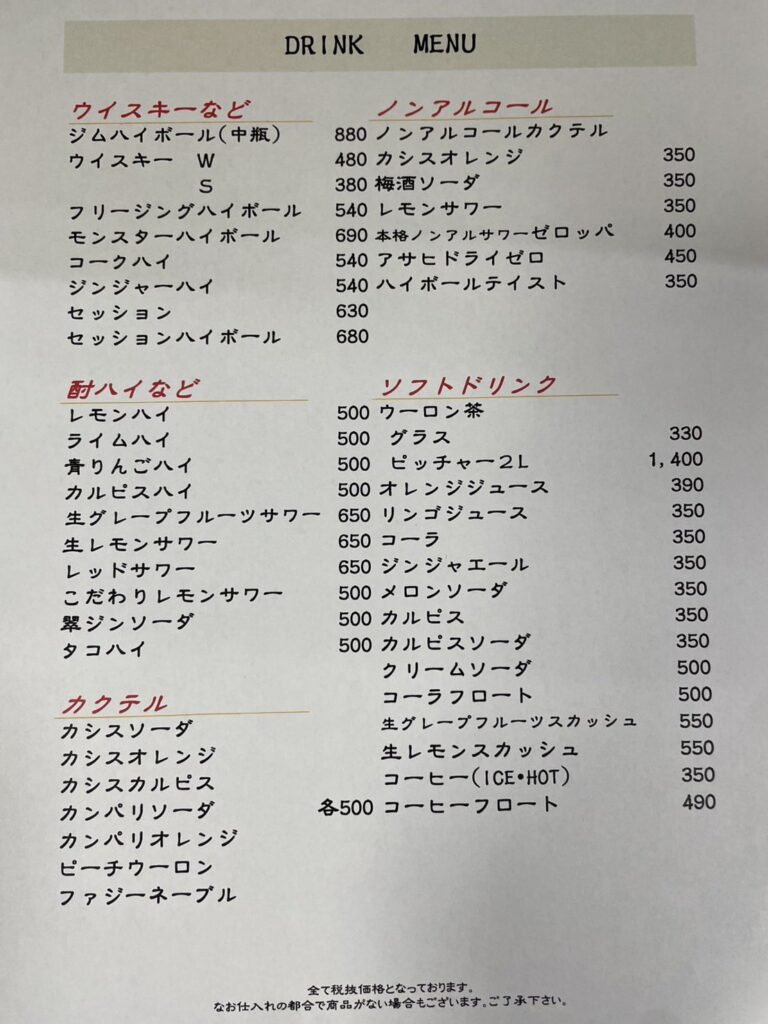 DRINK MENU
ウイスキーなど
ジムハイボール(中瓶) 880
ウイスキー W 480
S 380
フリージングハイボール 540
モンスターハイボール 690
コークハイ 540
ジンジャーハイ 540
セッション 630
セッションハイボール 680
酎ハイなど
レモンハイ 500
ライムハイ 500
青りんごハイ 500
カルピスハイ 500
生グレープフルーツサワー 650
生レモンサワー 650
レッドサワー 650
こだわりレモンサワー 500
翠ジンソーダ 500
タコハイ 500
カクテル
カシスソーダ
カシスオレンジ
カシスカルピス
カンパリソーダ 各500
カンパリオレンジ
ピーチウーロン
ファジーネーブル
ノンアルコール
ノンアルコールカクテル
カシスオレンジ 350
梅酒ソーダ 350
レモンサワー 350
本格ノンアルサワーゼロッパ 400
アサヒドライゼロ 450
ハイボールテイスト 350
ソフトドリンク
ウーロン茶
グラス 330
ピッチャー2L 1,400
オレンジジュース 390
リンゴジュース 350
コーラ 350
ジンジャエール 350
メロンソーダ 350
カルピス 350
カルピスソーダ 350
クリームソーダ 500
コーラフロート 500
生グレープフルーツスカッシュ 550
生レモンスカッシュ 550
コーヒー(ICE・HOT) 350
コーヒーフロート 490
全て税抜価格となっております。
なお仕入れの都合で商品がない場合もございます。ご了承下さい。